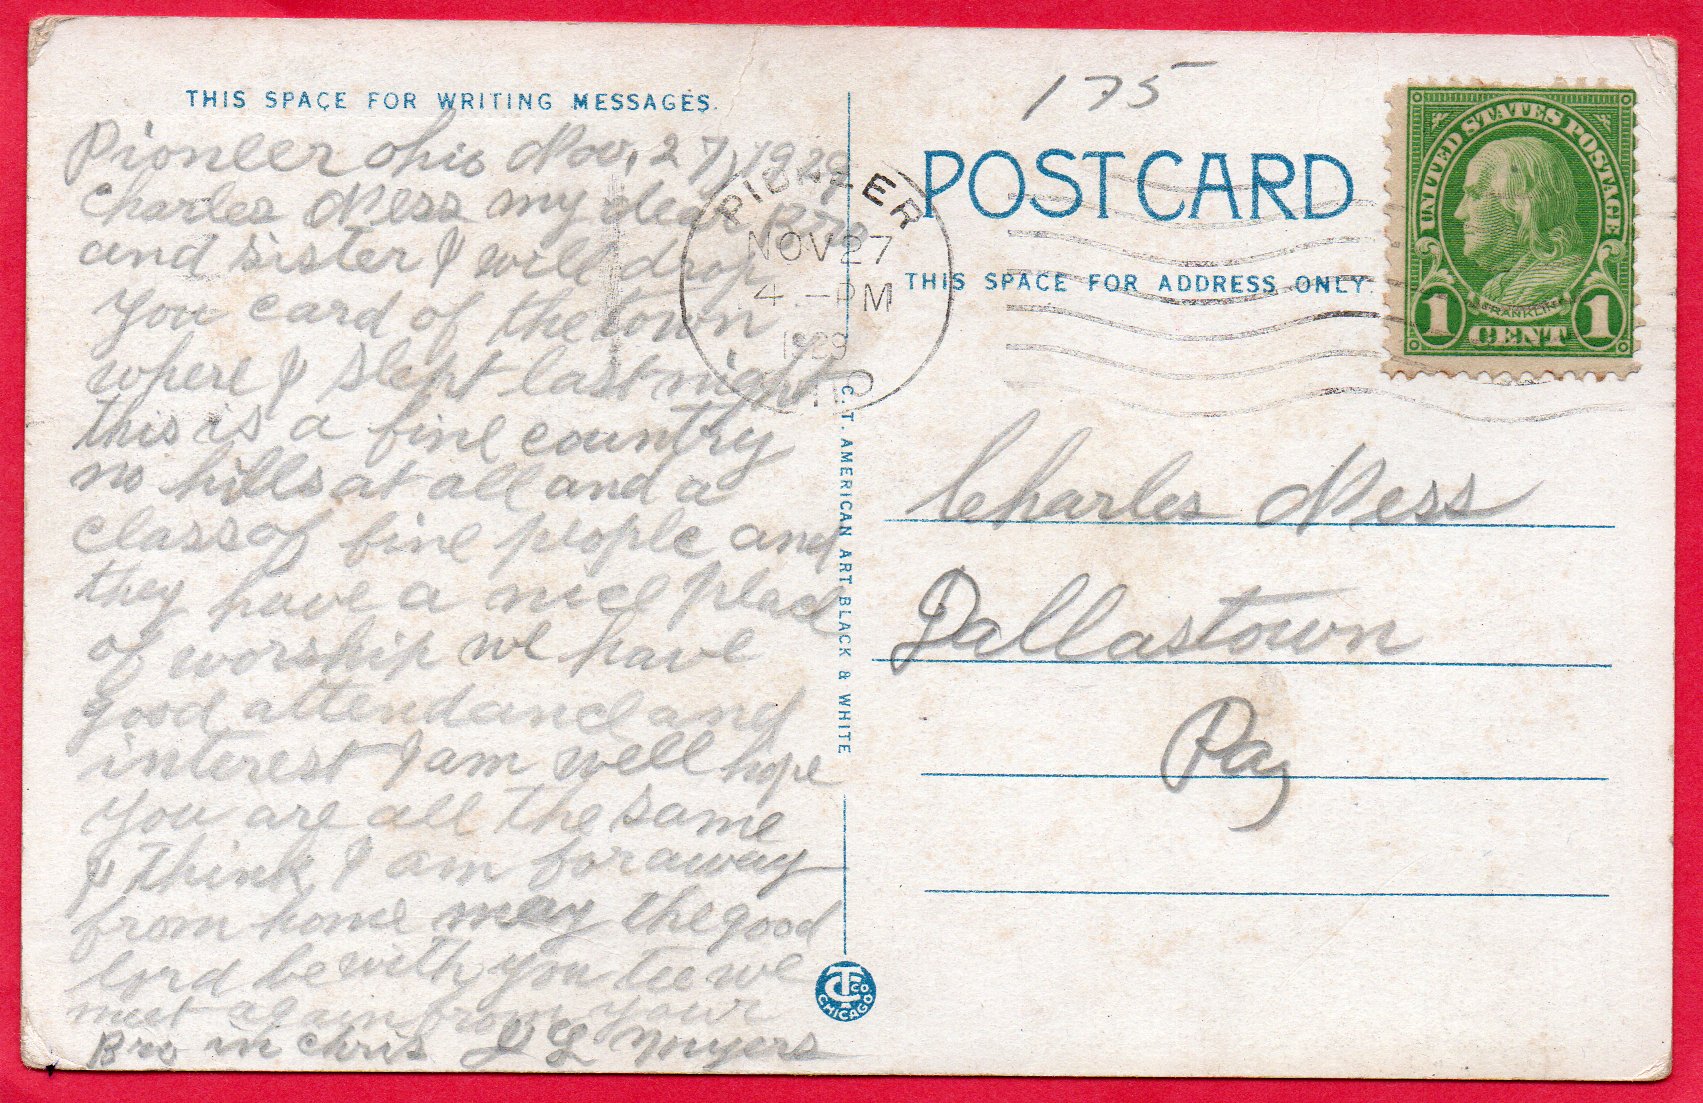 THIS SPACE FOR WRITING MESSAGES.
Pioneer ohio Nov, 27, 1929
Charles Ness my dear Bro
and sister I will drop
you card of the town
where I slept last night
this is a fine country
no hills at all and a
class of fine people and
they have a nice place
of worship we have
good attendance and
interest I am well hope
you are all the same
I think I am for away
from home may the good
lord be with you tee we
meet again from your
Bro in chris J L Myers
175
POST CARD
THIS SPACE FOR ADDRESS ONLY.
PIONEER
NOV 27
4 - PM
1929
UNITED STATES POSTAGE
FRANKLIN
1 CENT 1
C. T. AMERICAN ART BLACK & WHITE
Charles Ness
Dallastown
Pa
CT CO.
CHICAGO